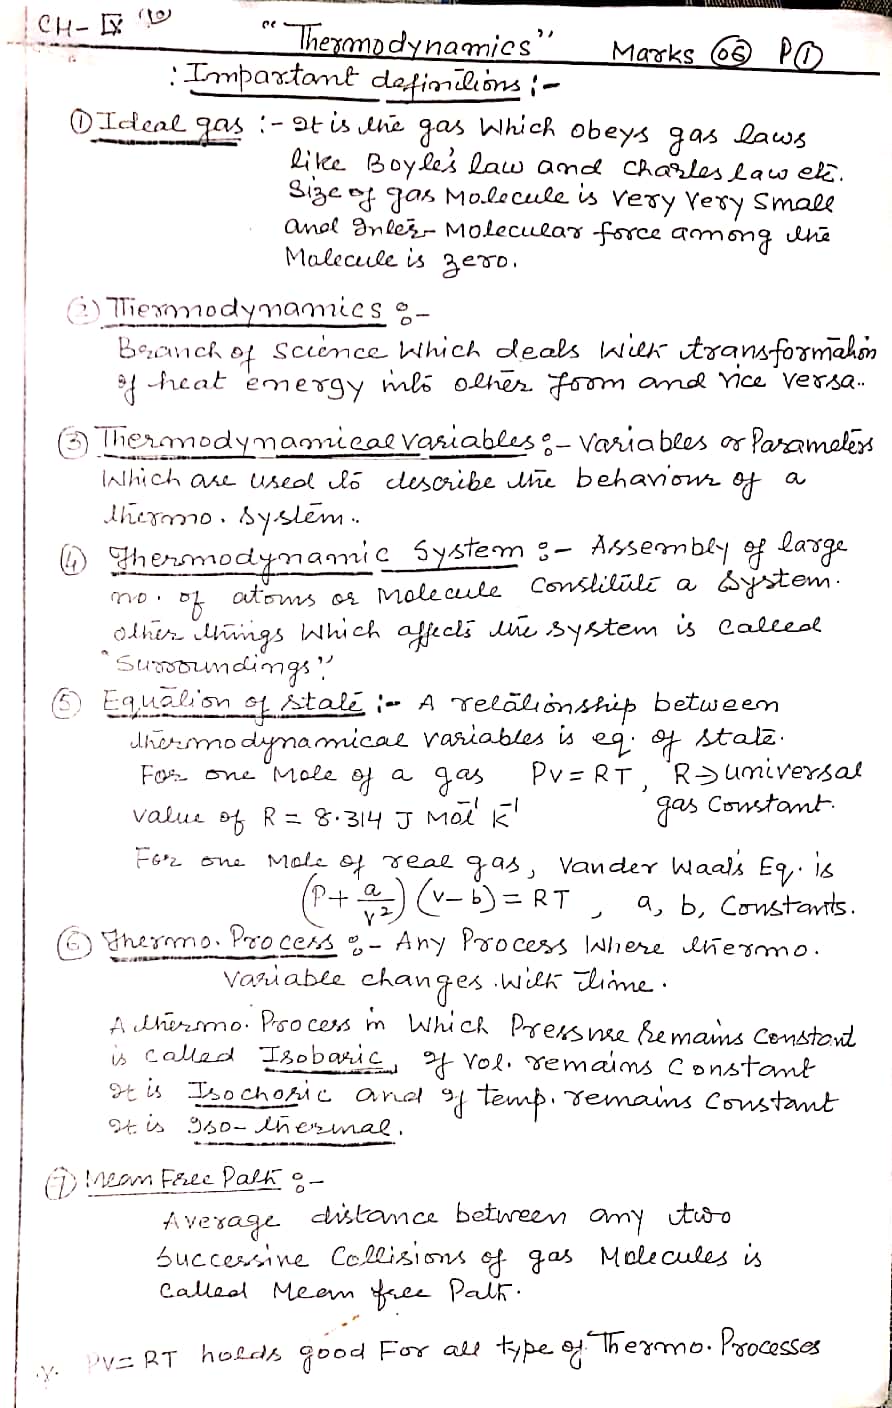 CH- IX
"Thermodynamics" Marks 06 P①
: Important definitions :-
① Ideal gas :- It is the gas Which obeys gas laws
like Boyle's law and Charles law etc.
Size of gas Molecule is very very Small
and Inter- Molecular force among the
Molecule is zero.
② Thermodynamics :-
Branch of Science Which deals With transformation
of heat energy into other form and vice versa..
③ Thermodynamical variables :- Variables or Parameters
Which are used to describe the behaviour of a
thermo. System..
④ Thermodynamic System :- Assembly of large
no. of atoms or Molecule Constitute a System.
other things Which affects the system is called
"Surroundings"
⑤ Equation of state :- A relationship between
thermodynamical variables is eq. of state.
For one Mole of a gas PV = RT, R → universal
gas Constant.
value of R = 8.314 J Mol⁻¹ K⁻¹
For one Mole of real gas, Vander Waal's Eq. is
(P + a/v²) (v-b) = RT , a, b, Constants.
⑥ Thermo. Process :- Any Process Where thermo.
Variable changes With time.
A thermo. Process in Which Pressure Remains Constant
is called Isobaric, If vol. remains Constant
It is Isochoric and If temp. remains Constant
It is Iso-thermal.
⑦ Mean Free Path :-
Average distance between any two
Successive Collisions of gas Molecules is
Called Mean free Path.
PV = RT holds good For all type of Thermo. Processes